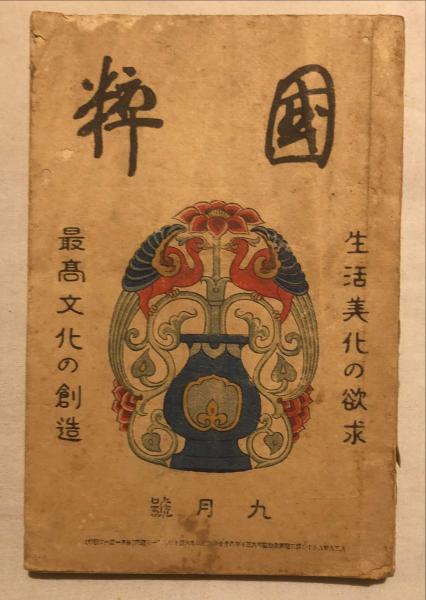 國粹
生活美化の欲求
最高文化の創造
九月號